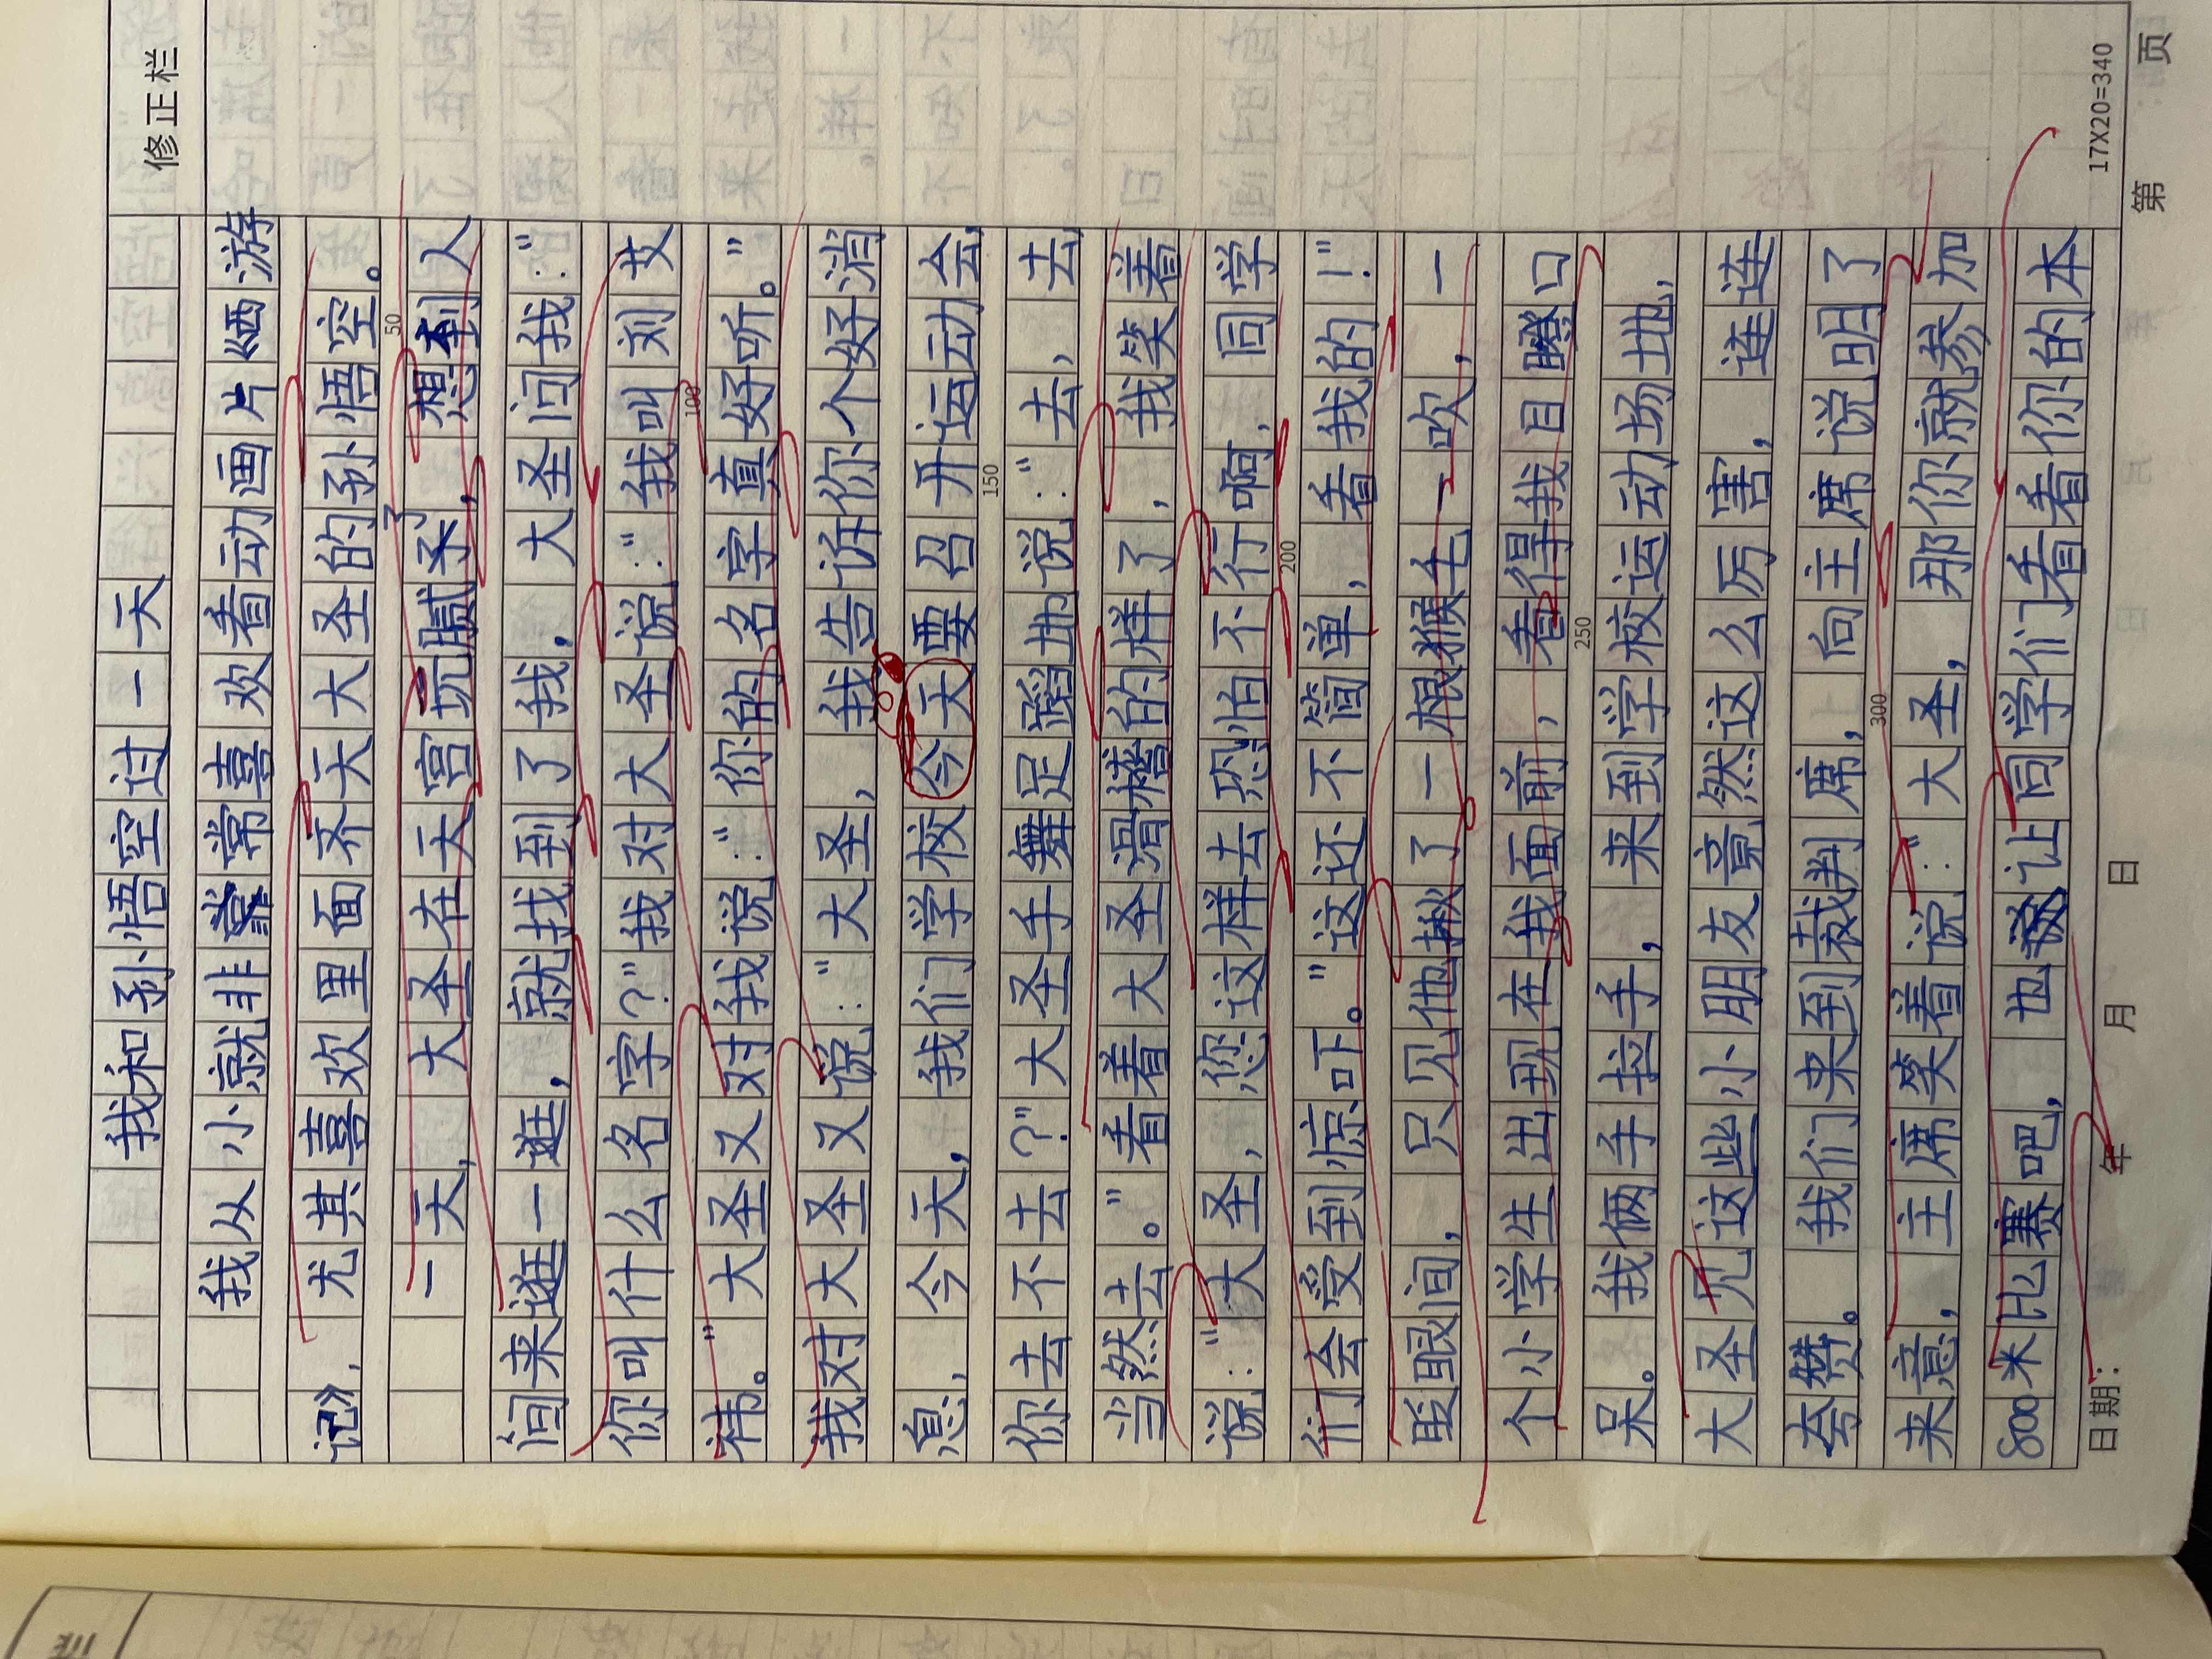 修正栏
我和孙悟空过一天
我从小就非常喜欢看动画片《西游
记》，尤其喜欢里面齐天大圣的孙悟空。
50
一天，大圣在天宫玩腻了，想到人
间来逛一逛，就找到了我，大圣问我：“
你叫什么名字？”我对大圣说：“我叫刘艾
100
祎。”大圣又对我说：“你的名字真好听。”
我对大圣又说：“大圣，我告诉你个好消
息，今天，我们学校今天要召开运动会，
150
你去不去？”大圣手舞足蹈地说：“去，去，
当然去。”看着大圣滑稽的样了，我笑着
说：“大圣，您这样去恐怕不行啊，同学
200
们会受到惊吓。”这还不简单，看我的！”
眨眼间，只见他揪了一根猴毛一吹，一
个小学生出现在我面前，看得我目瞪口
250
呆。我俩手拉手，来到学校运动场地，
大圣见这些小朋友竟然这么厉害，连连
夸赞。我们来到裁判席，向主席说明了
300
来意，主席笑着说：“大圣，那你就参加
800米比赛吧，也让同学们看看你的本
日期： 年 月 日
17X20=340
第 页